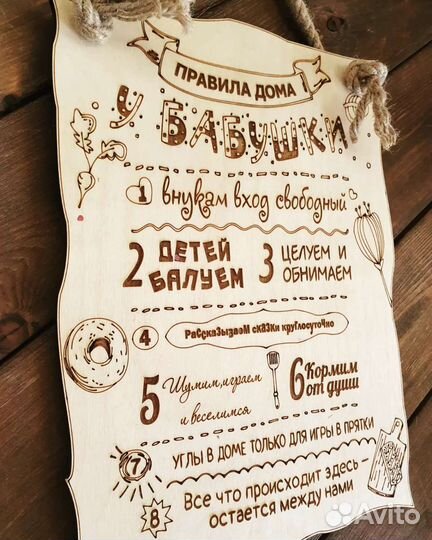 ПРАВИЛА ДОМА
У БАБУШКИ
1 внукам вход свободный
2 ДЕТЕЙ БАЛУЕМ
3 ЦЕЛУЕМ И ОБНИМАЕМ
4 Рассказываем сказки круглосуточно
5 Шумим, играем и веселимся
6 Кормим от души
7 УГЛЫ В ДОМЕ ТОЛЬКО ДЛЯ ИГРЫ В ПРЯТКИ
8 Все что происходит здесь –
остается между нами
Avito